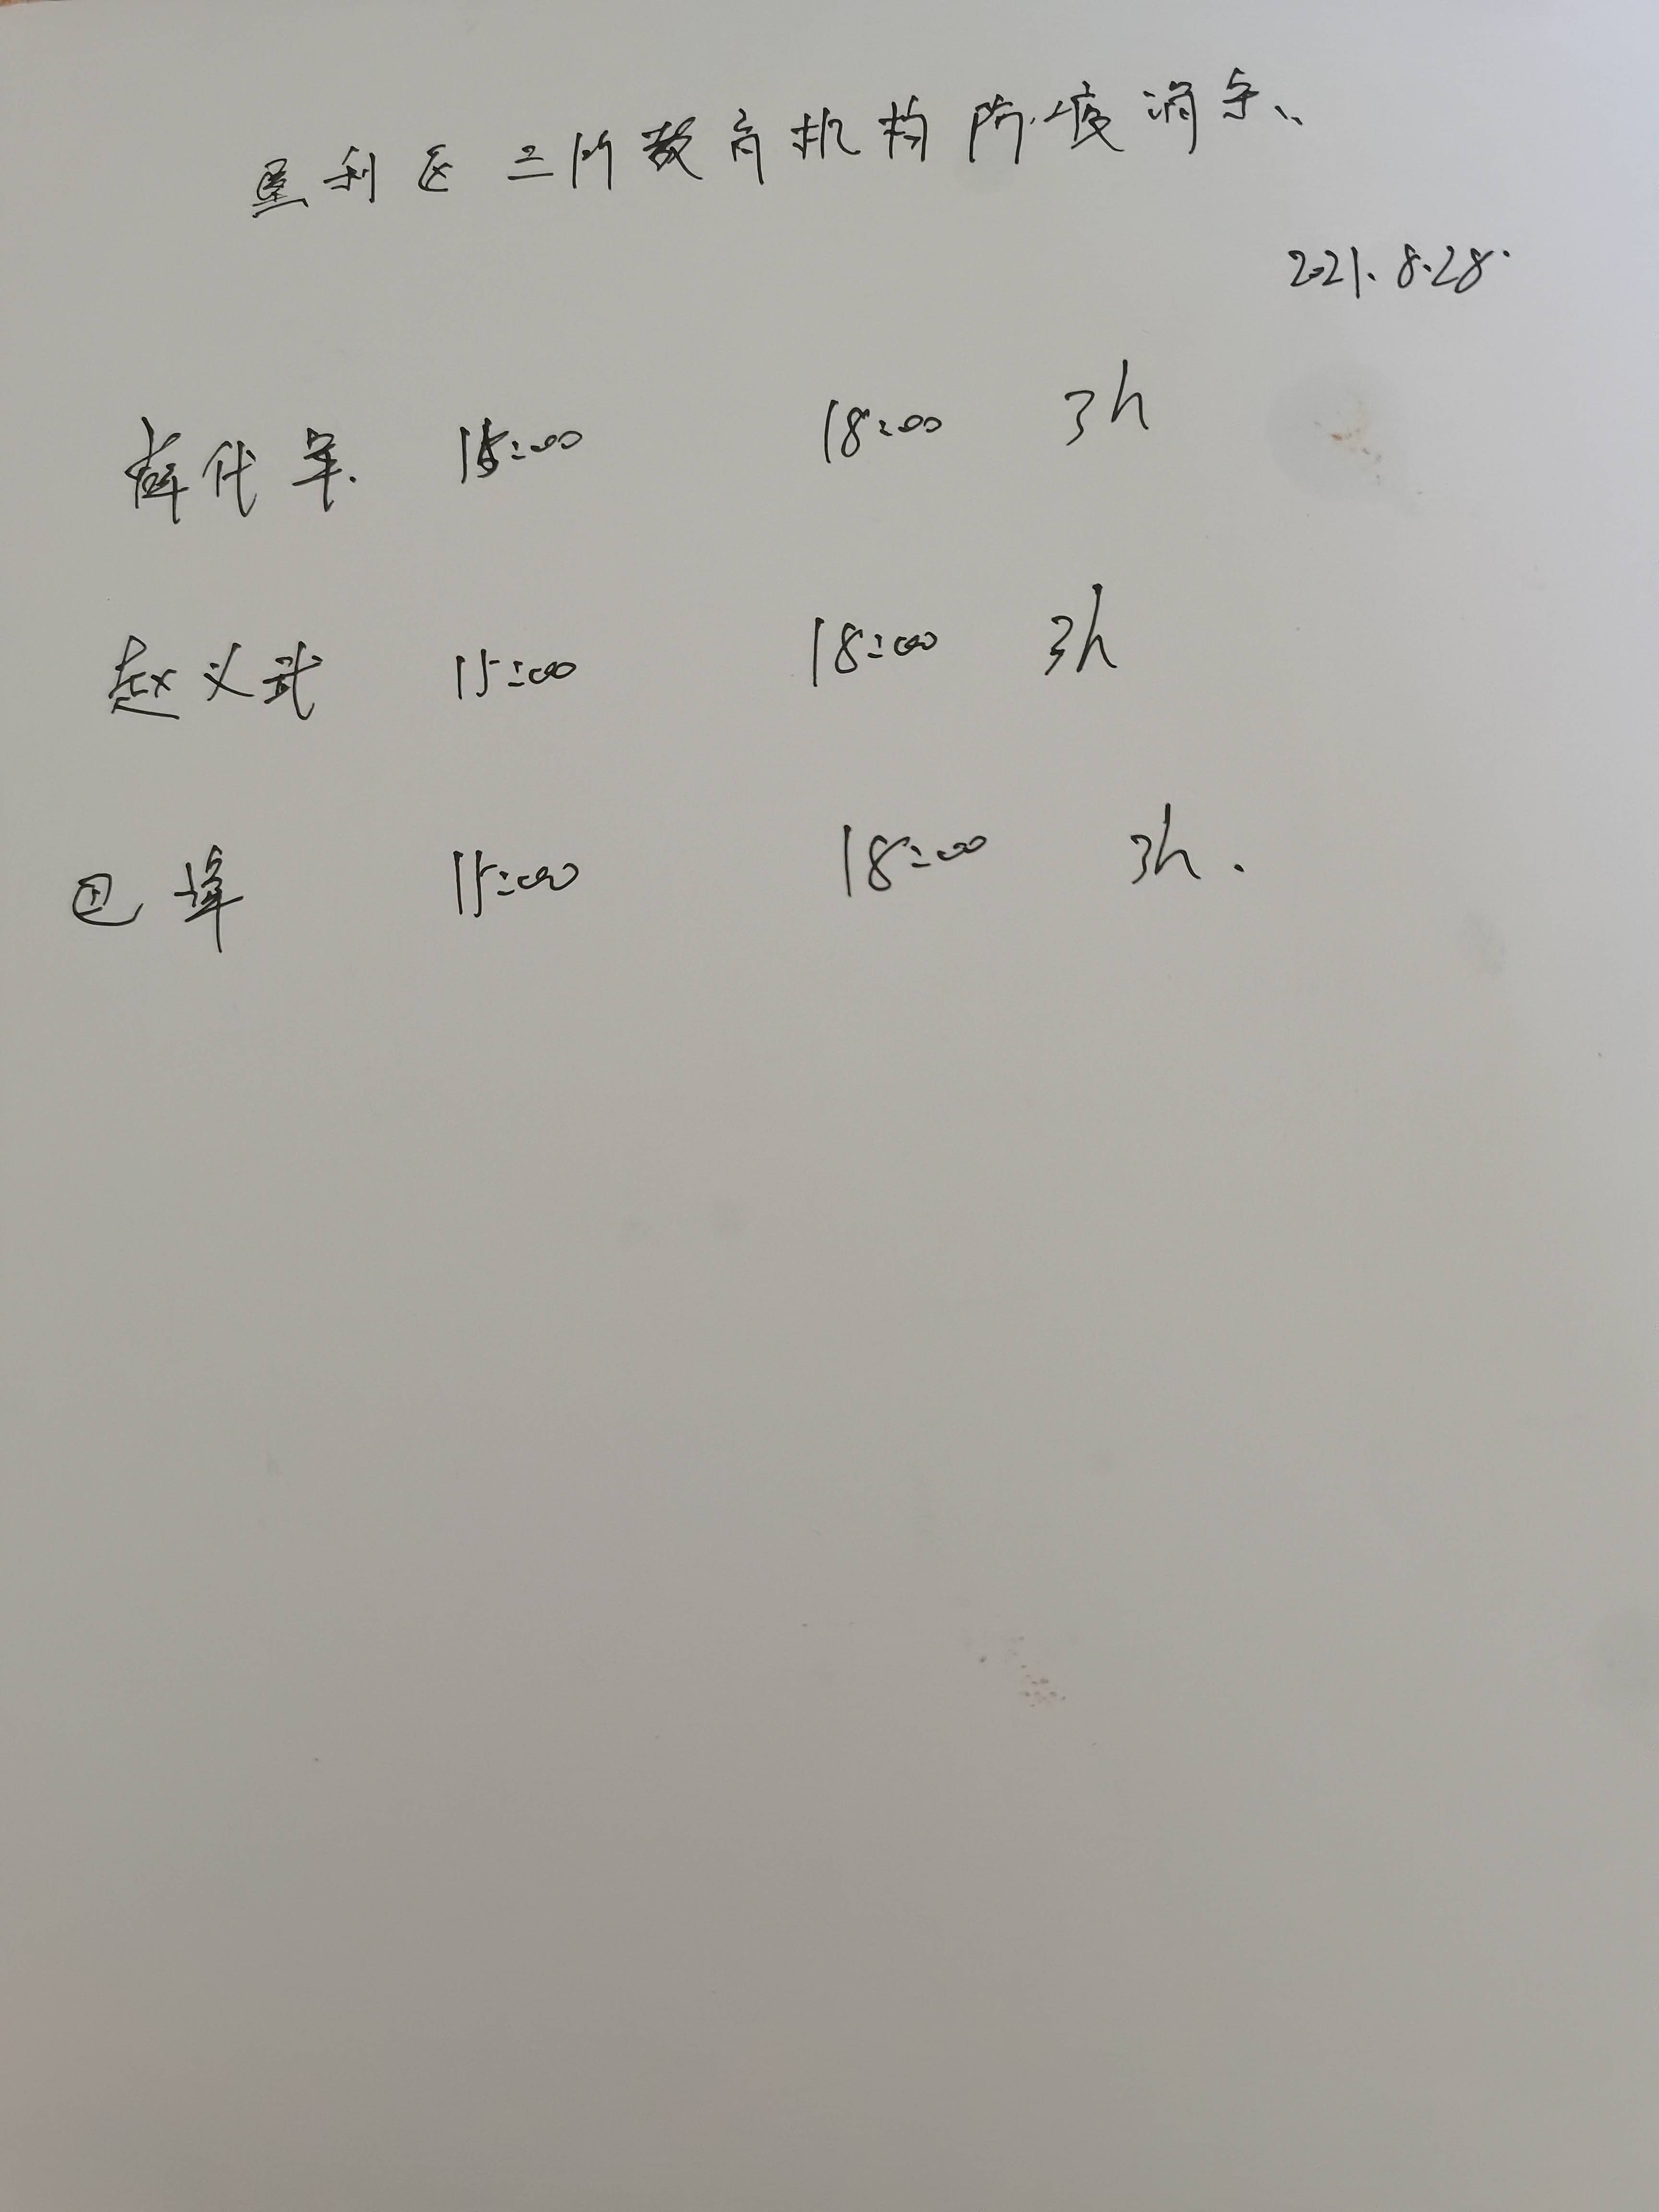 垦利区三阶教育机构防疫消杀
2021.8.28.
薛代军. 15:00 18:00 3h
赵义武 15:00 18:00 3h
巴峰 15:00 18:00 3h.